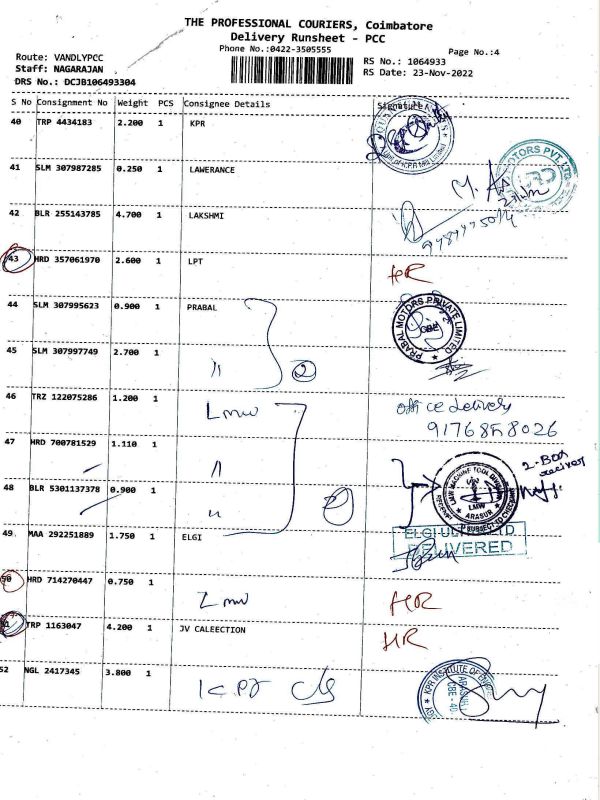 THE PROFESSIONAL COURIERS, Coimbatore
Delivery Runsheet - PCC
Phone No.:0422-3505555
Page No.:4
Route: VANDLYPCC
Staff: NAGARAJAN
DRS No.: DCJB106493304
RS No.: 1064933
RS Date: 23-Nov-2022
S No Consignment No Weight PCS Consignee Details Signature
40 TRP 4434183 2.200 1 KPR
41 SLM 307987285 0.250 1 LAWERANCE
MOTORS PVT. LTD.
42 BLR 255143785 4.700 1 LAKSHMI
43 HRD 357061970 2.600 1 LPT HR
44 SLM 307995623 0.900 1 PRABAL
PRABAL MOTORS PRIVATE LIMITED
CBE
45 SLM 307997749 2.700 1 11 2
46 TRZ 122075286 1.200 1 Lmw office delivery
9176858026
47 HRD 700781529 1.110 1 11
2-Box
LMW MACHINE TOOL DIVISION
LMW
ARASUR
48 BLR 5301137378 0.900 1 11 2
49 MAA 292251889 1.750 1 ELGI
ELGI ULTRA LTD
DELIVERED
50 HRD 714270447 0.750 1 Lmw HR
51 TRP 1163047 4.200 1 JV CALEECTION HR
52 NGL 2417345 3.800 1 KPR Clg
KPR INSTITUTE OF
ARASUR
CBE-40